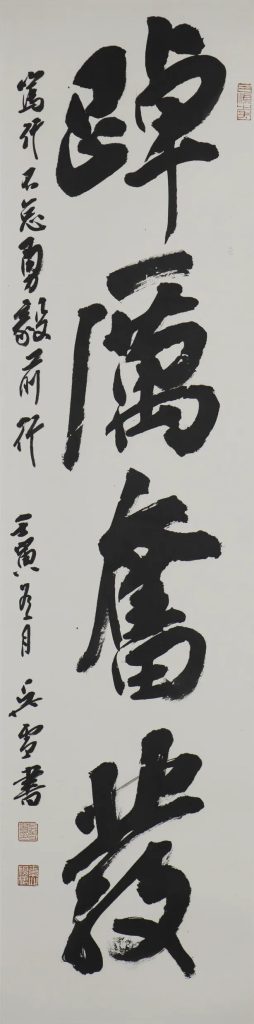 踔厲奮發
篤行不怠勇毅前行
壬寅冬月 吳雪書